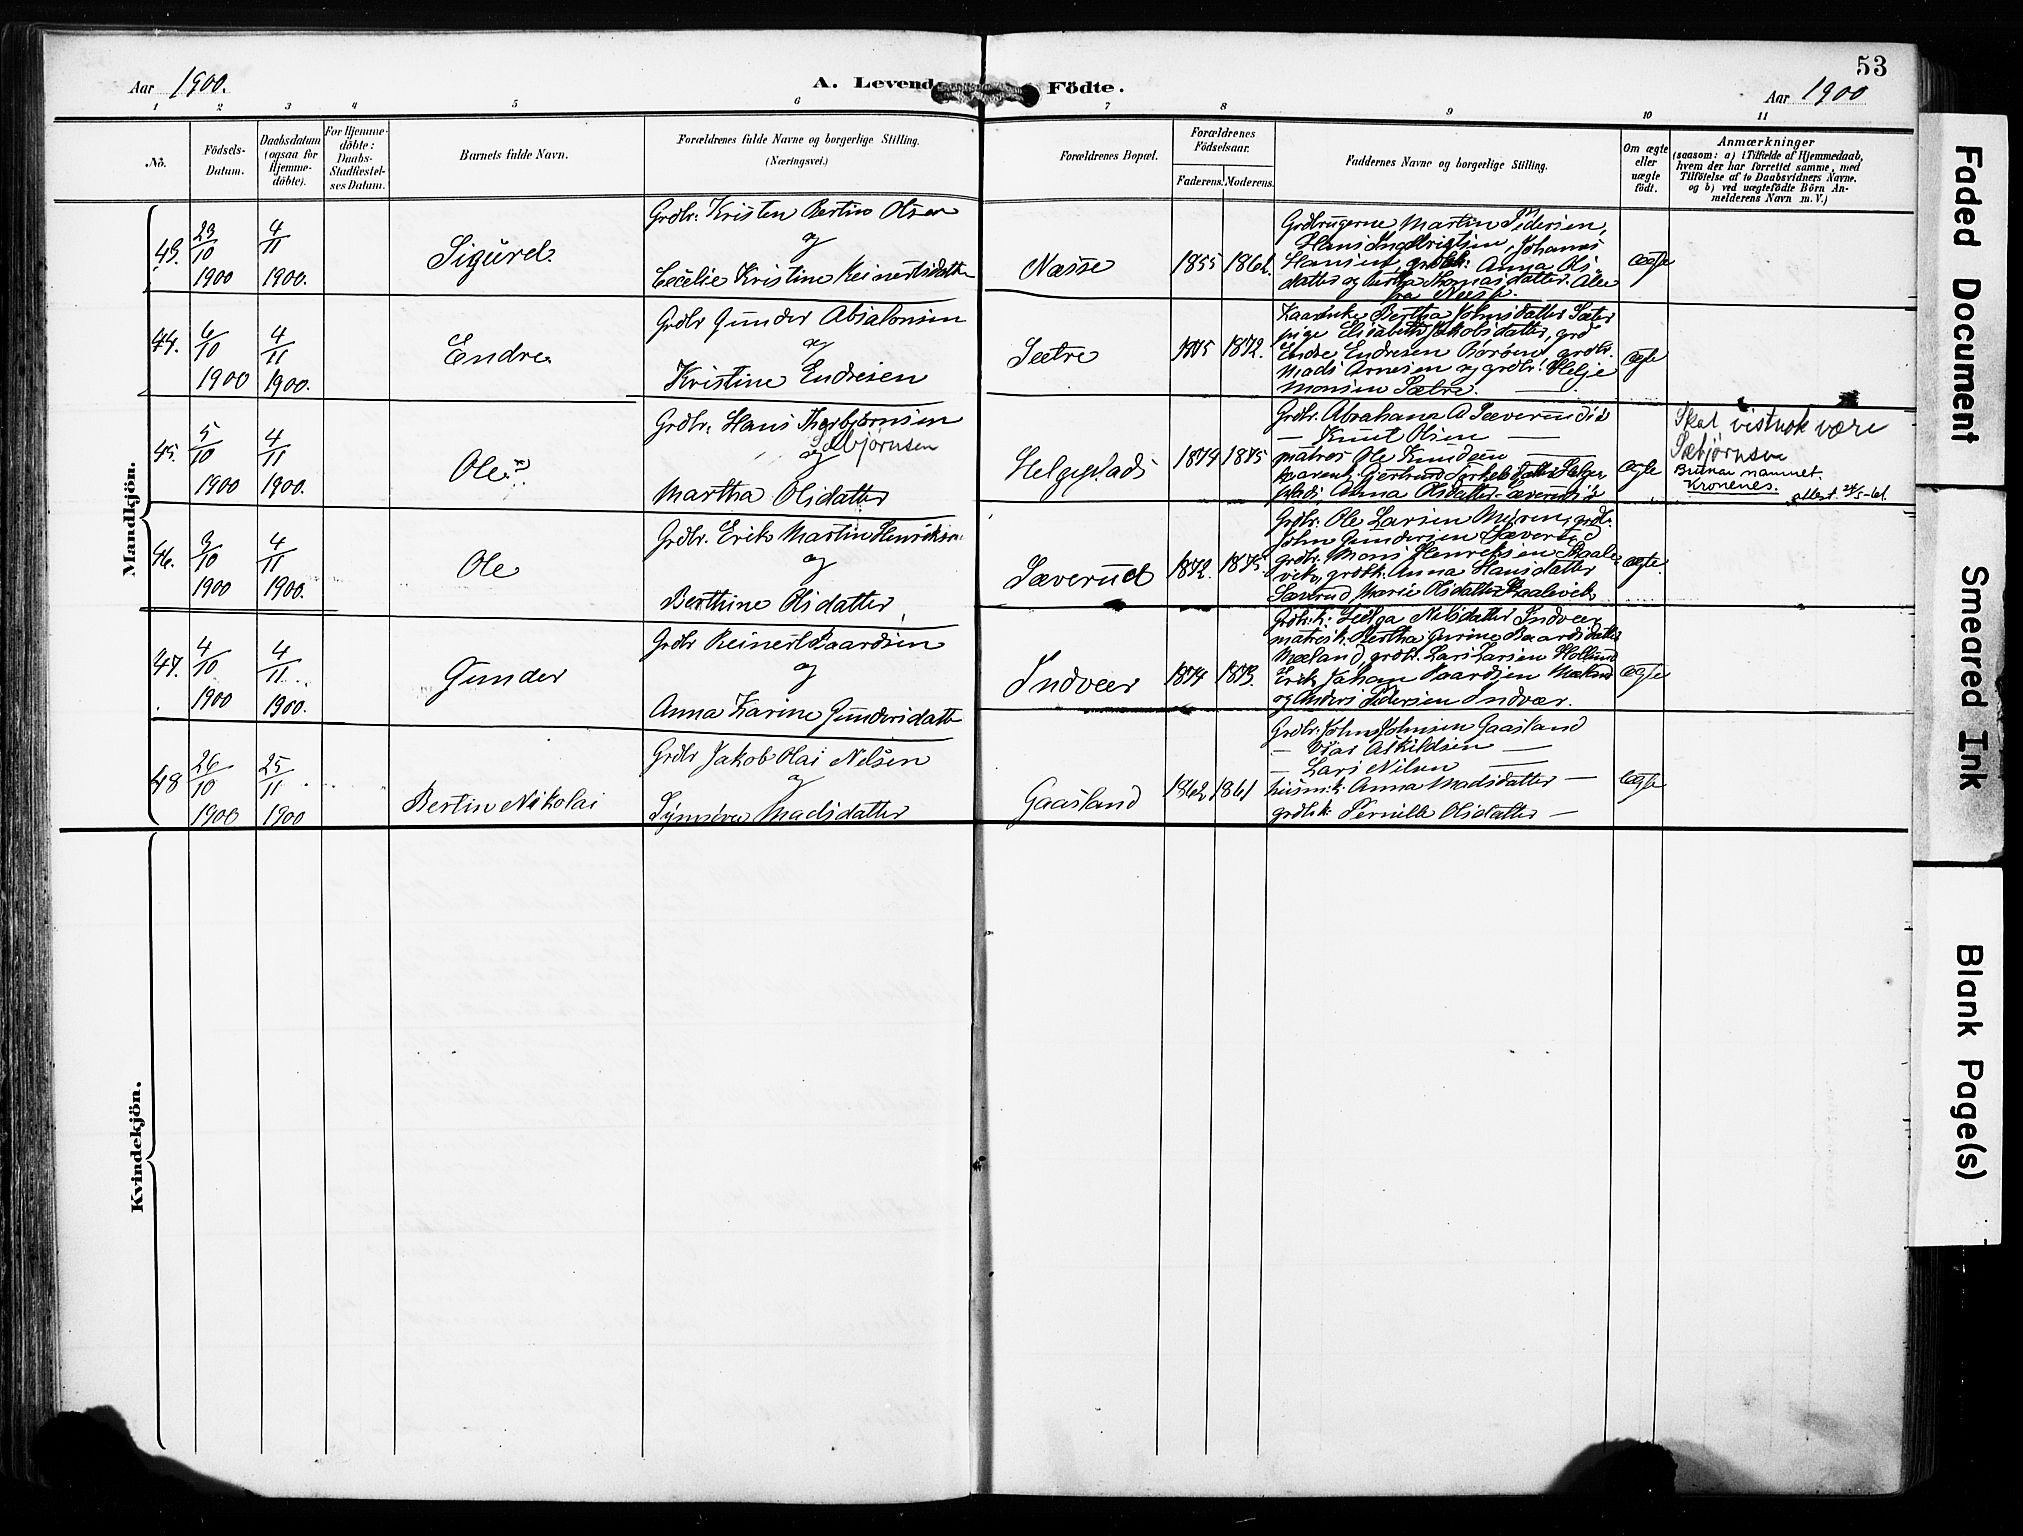 53
Aar 1900.
A. Levende Födte.
Aar 1900
1 2 3 4 5 6 7 8 9 10 11
No.
Födsels-
Datum.
Daabsdatum
(ogsaa for
Hjemme-
döbte).
For Hjemme-
döbte:
Daabs-
Stadfæstel-
ses Datum.
Barnets fulde Navn.
Forældrenes fulde Navne og borgerlige Stilling.
(Næringsvei.)
Forældrenes Bopæl.
Forældrenes
Födselsaar.
Faderens.
Moderens.
Faddernes Navne og borgerlige Stilling.
Om ægte
eller
uægte
födt.
Anmærkninger
(saasom: a) i Tilfælde af Hjemmedaab,
hvem der har forrettet samme, med
Tilföielse af to Daabsvidners Navne.
og b) ved uægtefödte Börn An-
melderens Navn m. V.)
Mandkjön.
43.
23/10
1900
4/11
1900.
Sigurd.
Grdbr. Kristen Bertin Olsen
og
Cecelie Kristine Reinertsdatter
Næsse
1855
1861.
Grdbrugerne Martin Pedersen,
Hans Ingebrigtsen, Johannes
Hansen, grdbk: Anna Ols-
datter og Bertha Thomasdatter. Alle
fra Næsse.
ægte
44.
6/10
1900
4/11
1900.
Endre.
Grdbr Gunder Absalonsen
og
Kristine Endresen
Sætre
1875
1872.
Bertha Johnsdatter Sæter
pige Elisabeth Jakobsdatter, grd
Endre Endresen Børøen, grdbr.
Mads Arnesen og grdbr. Helje
Monsen Sætre.
ægte
45.
5/10
1900
4/11
1900.
Ole
Grdbr. Hans Thorbjørnsen
Sæbjørnsen
og
Martha Olsdatter
Helgeplads
1874
1875
Grdbr. Abraham A Sæverudsis
— Knut Olsen —
matros Ole Knudsen —
Gjertrud Torkelsdatter Helge-
plads Anna Olsdatter Sæverudsis
ægte
Skal vistnok være
Sæbjørnsen
Bruker navnet.
Kronenes.
attest. 24/5-61.
46.
3/10
1900
4/11
1900.
Ole
Grdbr. Erik Martin Henriksen
og
Berthine Olsdatter
Sæverud
1872.
1875.
Grdbr. Ole Larsen Myren, grdbr.
John Gundersen Sæverud
grdbr. Mons Henriksen Skaale-
vik, grdbk: Anna Hansdatter
Sæverud Marie Olsdatter Skaalevik
ægte.
47.
4/10
1900
4/11
1900.
Gunder
Grdbr Reinert Baardsen
og
Anna Karine Gundersdatter
Indvær
1874
1873.
Grdbr.k. Helga Nilsdatter Indvær
matrosk. Bertha Gurine Baardsdatter
Mæland, grdbr. Lars Larsen Hollund
Erik Johan Baardsen Mæland
og Anders Pedersen Indvær.
ægte
48
26/10
1900
25/11
1900
Bertin Nikolai
Grdbr Jakob Olai Nilsen
og
Synnøve Madsdatter
Gaasland
1862
1861
Grdbr. John Johnsen Gaasland
— Askildsen —
— Lars Nilsen —
husm.k. Anna Madsdatter —
grdbk: Pernille Olsdatter —
ægte
Kvindekjön.
Faded Document
Smeared Ink
Blank Page(s)